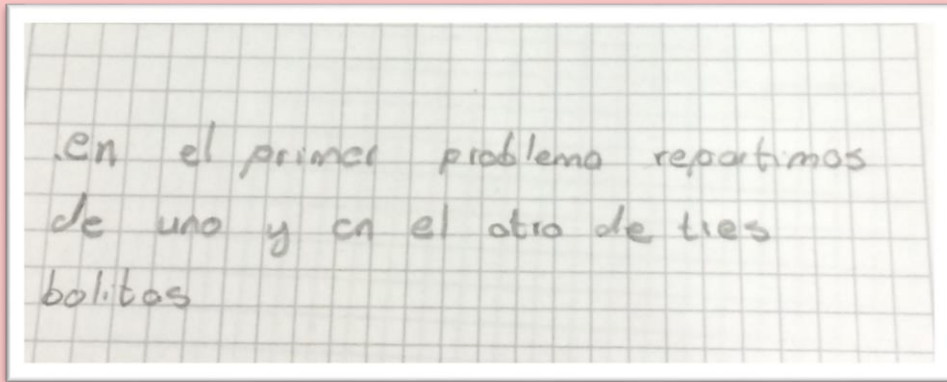 en el primer problema repartimos
de uno y en el otro de tres
bolitas